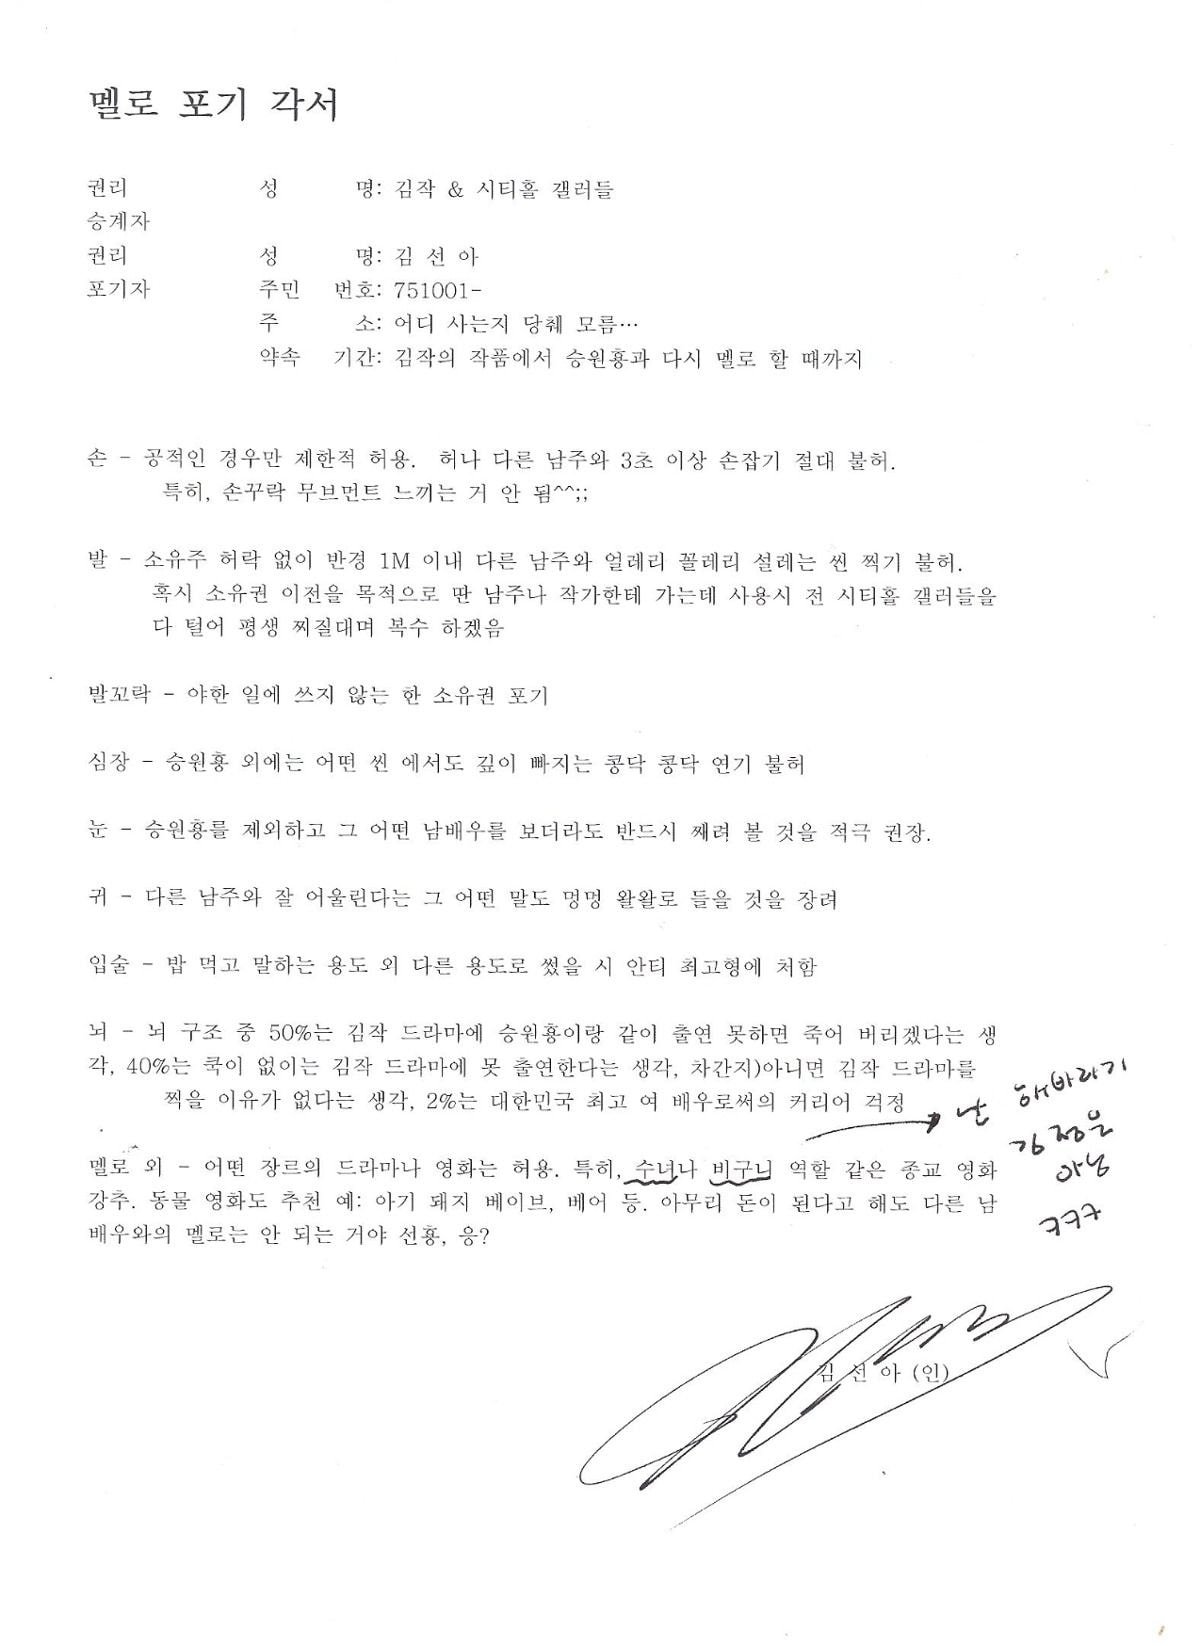 멜로 포기 각서
권리 성 명: 김작 & 시티홀 갤러들
승계자
권리 성 명: 김 선 아
포기자 주민 번호: 751001-
주 소: 어디 사는지 당췌 모름…
약속 기간: 김작의 작품에서 승원횽과 다시 멜로 할 때까지
손 - 공적인 경우만 제한적 허용. 허나 다른 남주와 3초 이상 손잡기 절대 불허.
특히, 손꾸락 무브먼트 느끼는 거 안 됨^^;;
발 - 소유주 허락 없이 반경 1M 이내 다른 남주와 얼레리 꼴레리 설레는 씬 찍기 불허.
혹시 소유권 이전을 목적으로 딴 남주나 작가한테 가는데 사용시 전 시티홀 갤러들을
다 털어 평생 찌질대며 복수 하겠음
발꼬락 - 야한 일에 쓰지 않는 한 소유권 포기
심장 - 승원횽 외에는 어떤 씬 에서도 깊이 빠지는 콩닥 콩닥 연기 불허
눈 - 승원횽를 제외하고 그 어떤 남배우를 보더라도 반드시 째려 볼 것을 적극 권장.
귀 - 다른 남주와 잘 어울린다는 그 어떤 말도 멍멍 왈왈로 들을 것을 장려
입술 - 밥 먹고 말하는 용도 외 다른 용도로 썼을 시 안티 최고형에 처함
뇌 - 뇌 구조 중 50%는 김작 드라마에 승원횽이랑 같이 출연 못하면 죽어 버리겠다는 생
각, 40%는 쿡이 없이는 김작 드라마에 못 출연한다는 생각, 차간지)아니면 김작 드라마를
찍을 이유가 없다는 생각, 2%는 대한민국 최고 여 배우로써의 커리어 걱정
난 해바라기
김정은
아님
ㅋㅋㅋ
멜로 외 - 어떤 장르의 드라마나 영화는 허용. 특히, 수녀나 비구니 역할 같은 종교 영화
강추. 동물 영화도 추천 예: 아기 돼지 베이브, 베어 등. 아무리 돈이 된다고 해도 다른 남
배우와의 멜로는 안 되는 거야 선횽, 응?
김 선 아 (인)